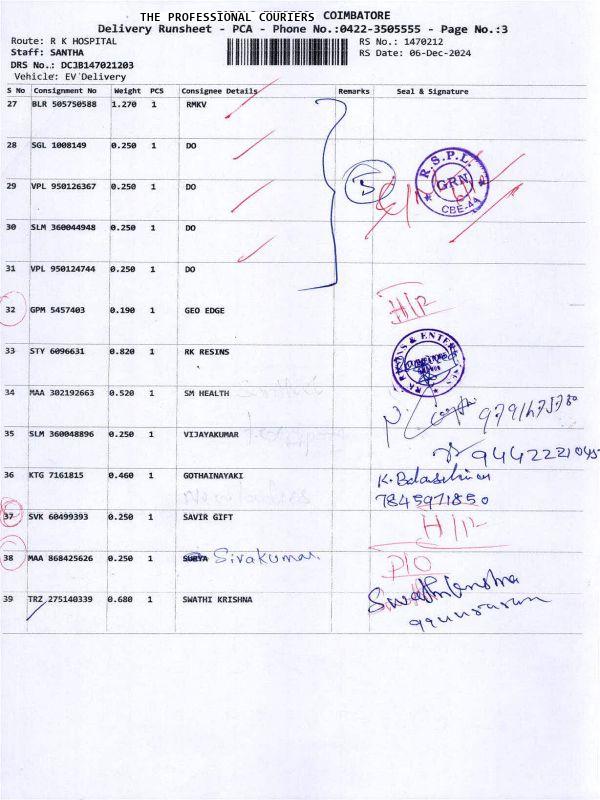 THE PROFESSIONAL COURIERS COIMBATORE
Delivery Runsheet - PCA - Phone No.:0422-3505555 - Page No.:3
Route: R K HOSPITAL RS No.: 1470212
Staff: SANTHA RS Date: 06-Dec-2024
DRS No.: DCJB147021203
Vehicle: EV Delivery
S No Consignment No Weight PCS Consignee Details Remarks Seal & Signature
27 BLR 505750588 1.270 1 RMKV
28 SGL 1008149 0.250 1 DO
29 VPL 950126367 0.250 1 DO
5
R.S.P.L.
GRN
CBE-44
30 SLM 360044948 0.250 1 DO
31 VPL 950124744 0.250 1 DO
32 GPM 5457403 0.190 1 GEO EDGE
33 STY 6096631 0.820 1 RK RESINS
34 MAA 302192663 0.520 1 SM HEALTH
35 SLM 360048896 0.250 1 VIJAYAKUMAR
36 KTG 7161815 0.460 1 GOTHAINAYAKI
7845971850
37 SVK 60499393 0.250 1 SAVIR GIFT
38 MAA 868425626 0.250 1 SURYA Sivakumar
39 TRZ 275140339 0.680 1 SWATHI KRISHNA